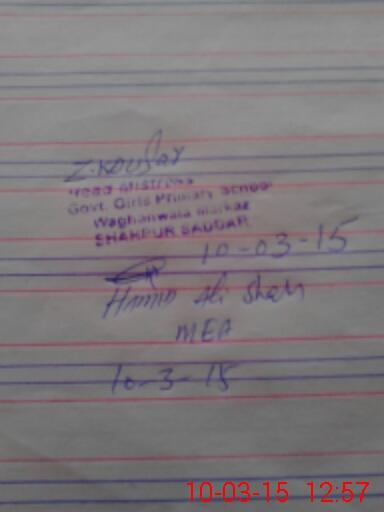 Z.Kousar
Head Mistress
Govt. Girls Primary School
Waghanwala Markaz
SHAHPUR SADDAR
10-03-15
Hamid Ali Shah
MEA
10-3-15
10-03-15 12:57